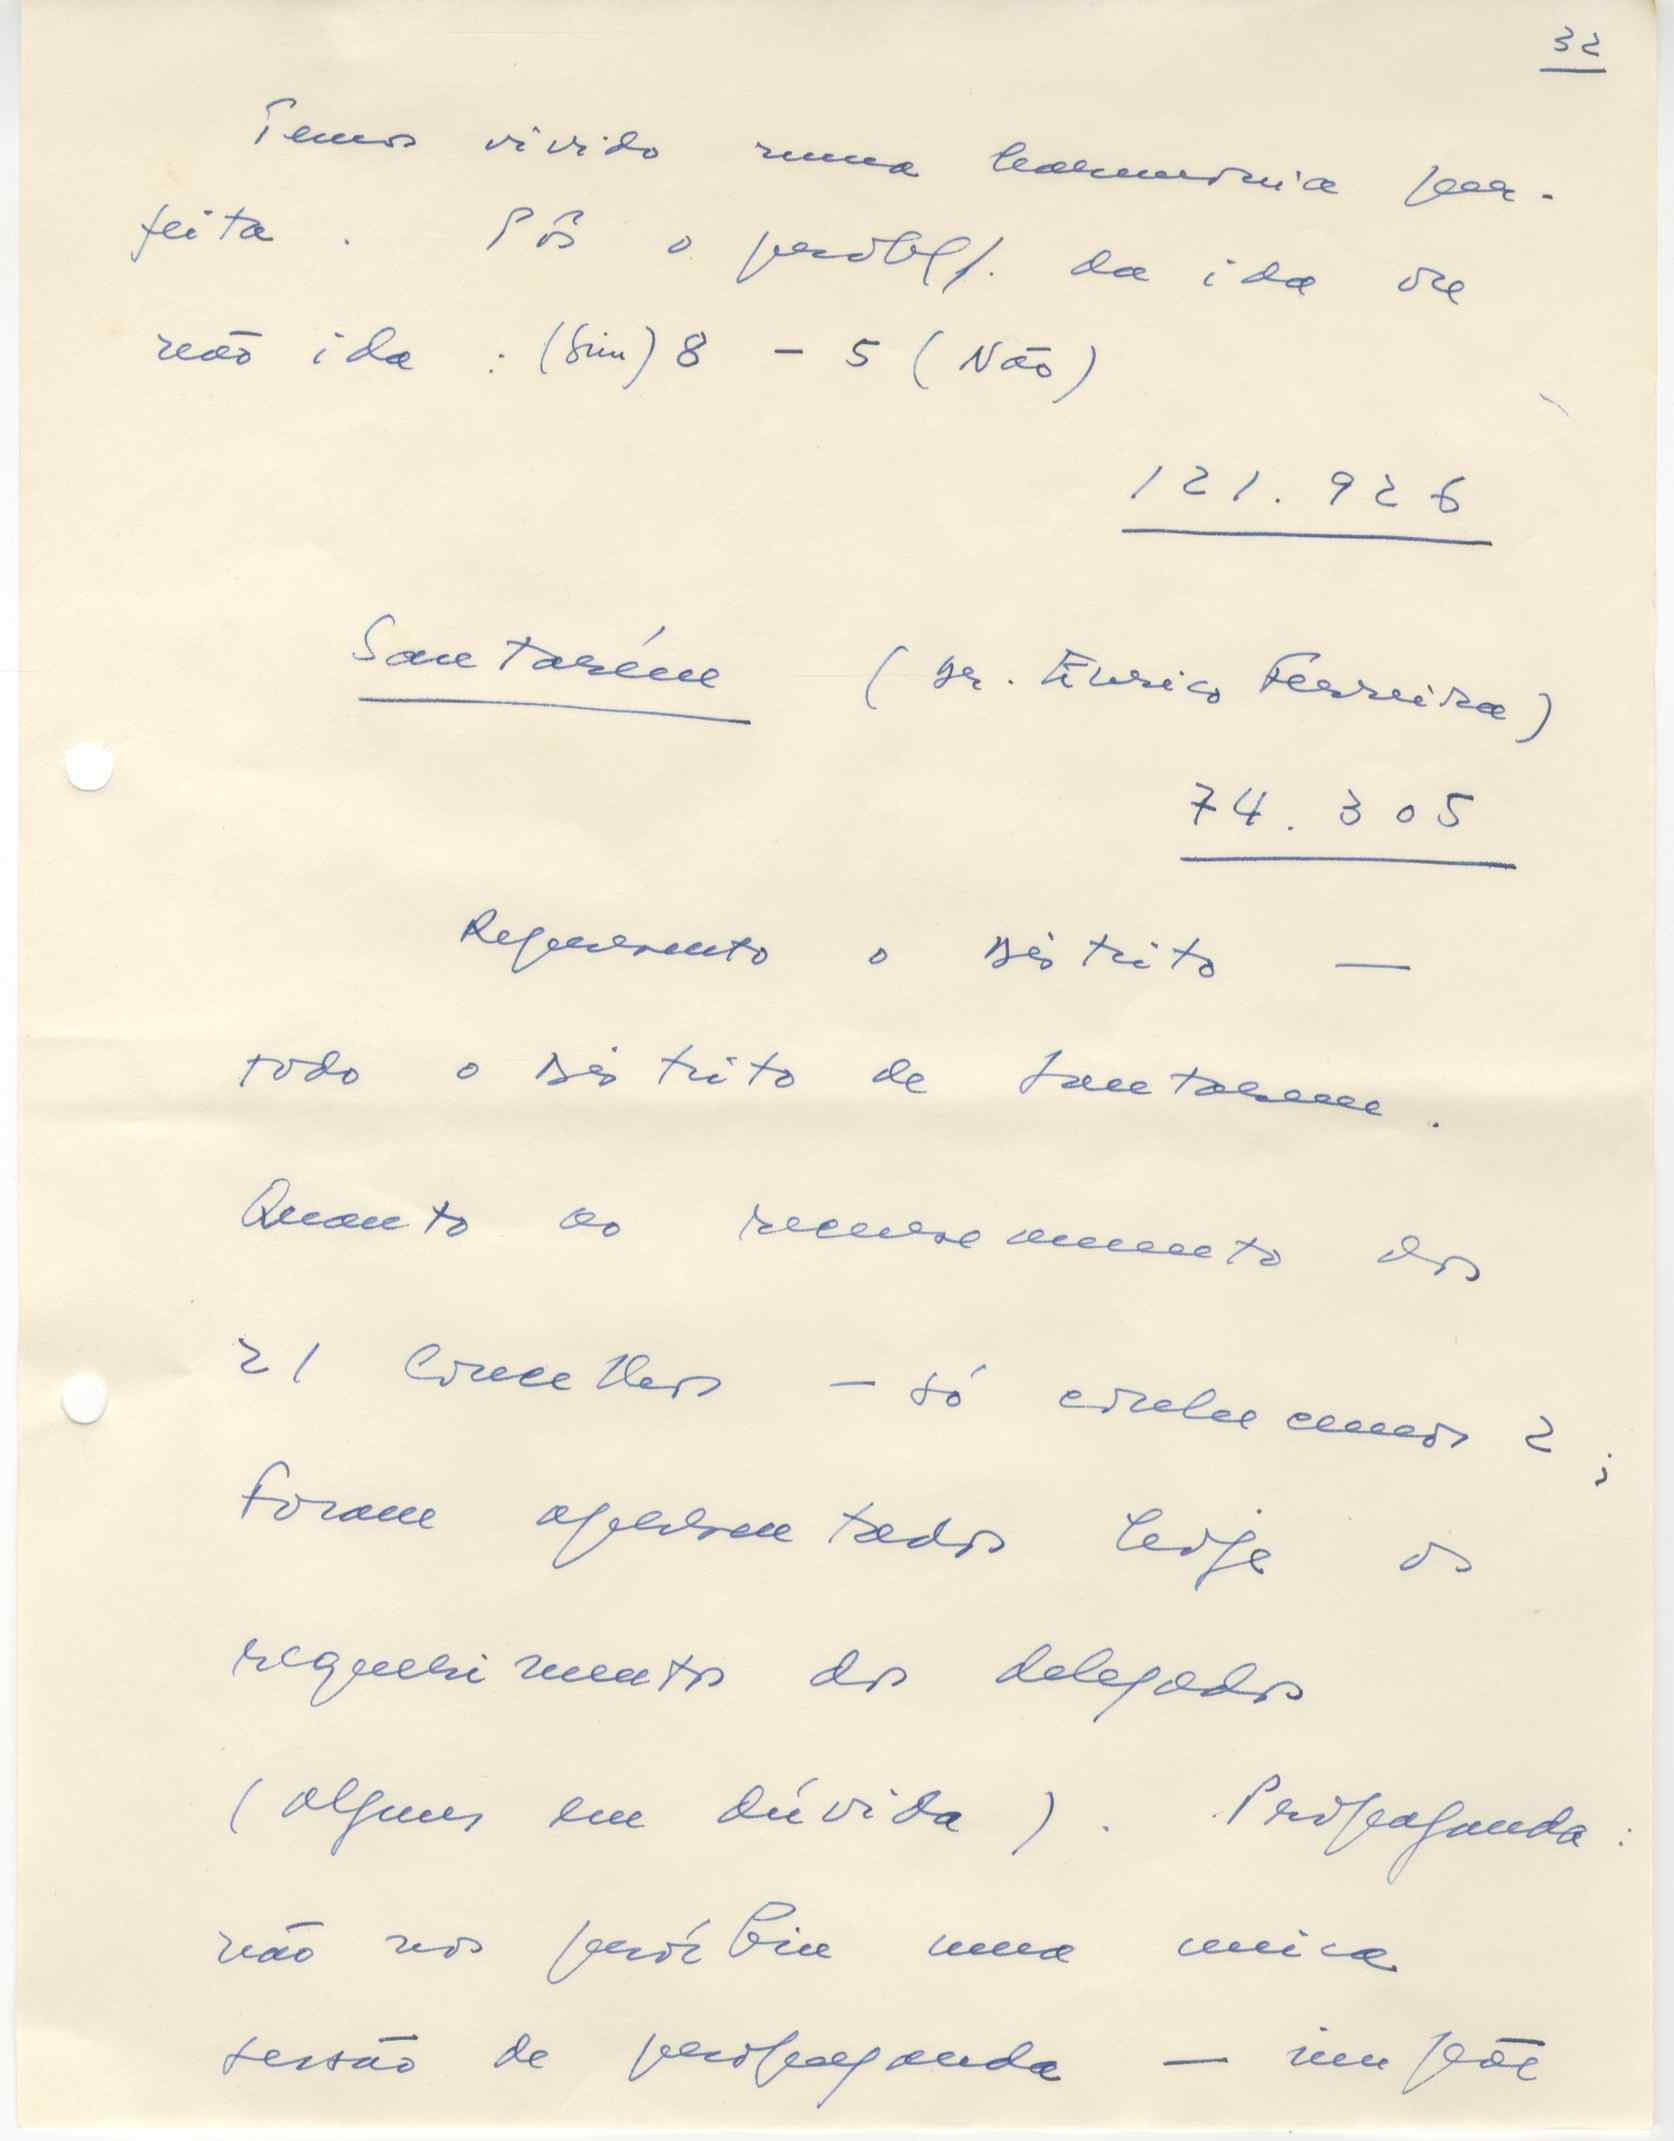 32
Temos vivido numa harmonia per-
feita. Pôs o probl/. da ida ou
não ida : (Sim) 8 - 5 (Não)
121.926
Santarém (Dr. Eurico Ferreira)
74.305
Represento o Distrito —
todo o Distrito de Santarem.
Quanto ao recenseamento dos
21 Concelhos — só conhecemos 2;
Foram apresentados hoje os
requerimentos dos delegados
(alguns em dúvida). Propaganda:
não nos proíbiu uma unica
sessão de propaganda — impõe